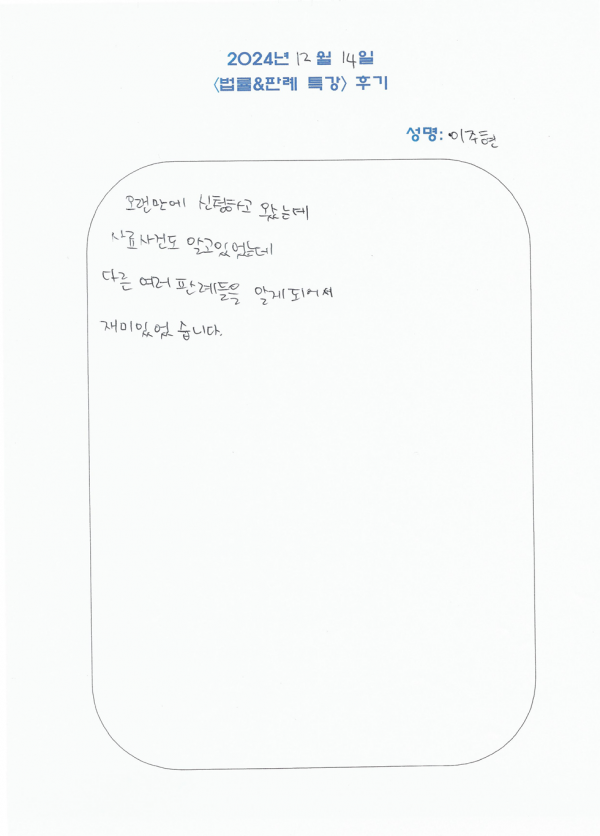 2024년 12월 14일
<법률&판례 특강> 후기
성명: 이주현
오랜만에 신청하고 왔는데
사료사건도 알고있었는데
다른 여러 판례들을 알게되어서
재미있었습니다.